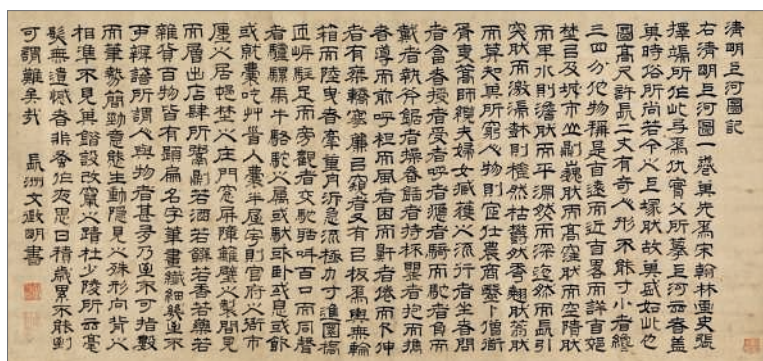 清明上河圖記
右清明上河圖一卷其先爲宋翰林画史張
擇端所作此弓爲仇實父所摹上河云者蓋
其時俗所尚若今之上塚然故其盛如此也
圖高尺許長二丈有奇人形不能寸小者纔
三四分他物稱是自遠而近自畧而詳自郊
埜以及城市山則巍然而高窪然而空隤然
而卑水則澹然而平淵然而深迤然而長引
突然而激湍樹則槎然枯鬱然秀翹然蓊然
而莫知其所窮人物則官仕農商醫卜僧道
胥吏篙師纜夫婦女臧獲之流行者坐者問
者答者授者受者呼者應者騎而馳者負而
戴者執斧鋸者操畚鍤者持杯罌者抱而攜
者導而前呼袒而風者困而鼾者倦而欠伸
者有乘轎搴簾以窺者又有以板爲輿無輪
箱而陸曳者牽重舟泝急流極力寸進圜橋
匝岸駐足而旁觀者交驩助叫百口而同聲
者驢騾馬牛駱駝之屬或馱或臥或息或飲
或就囊吃草首入囊半屋宇則官府之衙市
廛之居村埜之庄門窗屏障籬壁之製間見
而層出店肆所鬻則若酒若饌若香若藥若
雜貨百物皆有題扁名字筆畫纖細幾至不
可辨識所謂人與物者甚多乃至不可指數
而筆勢簡勁意態生動隱見之殊形向背之
相準不見其錯誤改竄之蹟杜少陵所云毫
髮無遺憾者非蚤作夜思日積歲累不能到
可謂難矣哉 長洲文徵明書